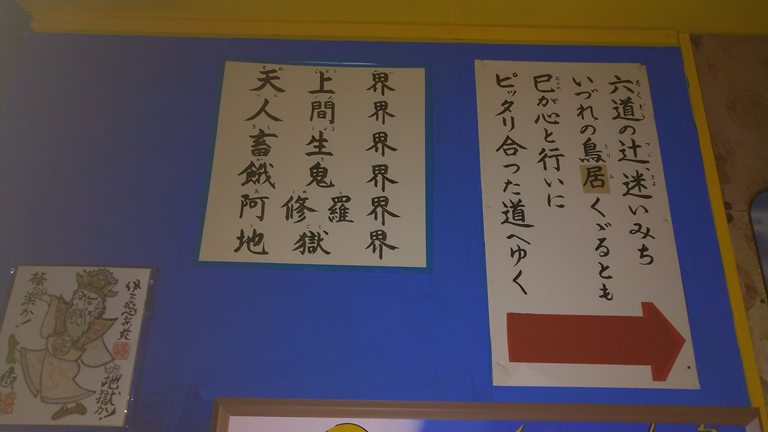 六道の辻、迷いみち
いづれの鳥居くゞるとも
巳が心と行いに
ピッタリ合った道へゆく
天上界
人間界
畜生界
餓鬼界
阿修羅界
地獄界
極楽か!
地獄か!